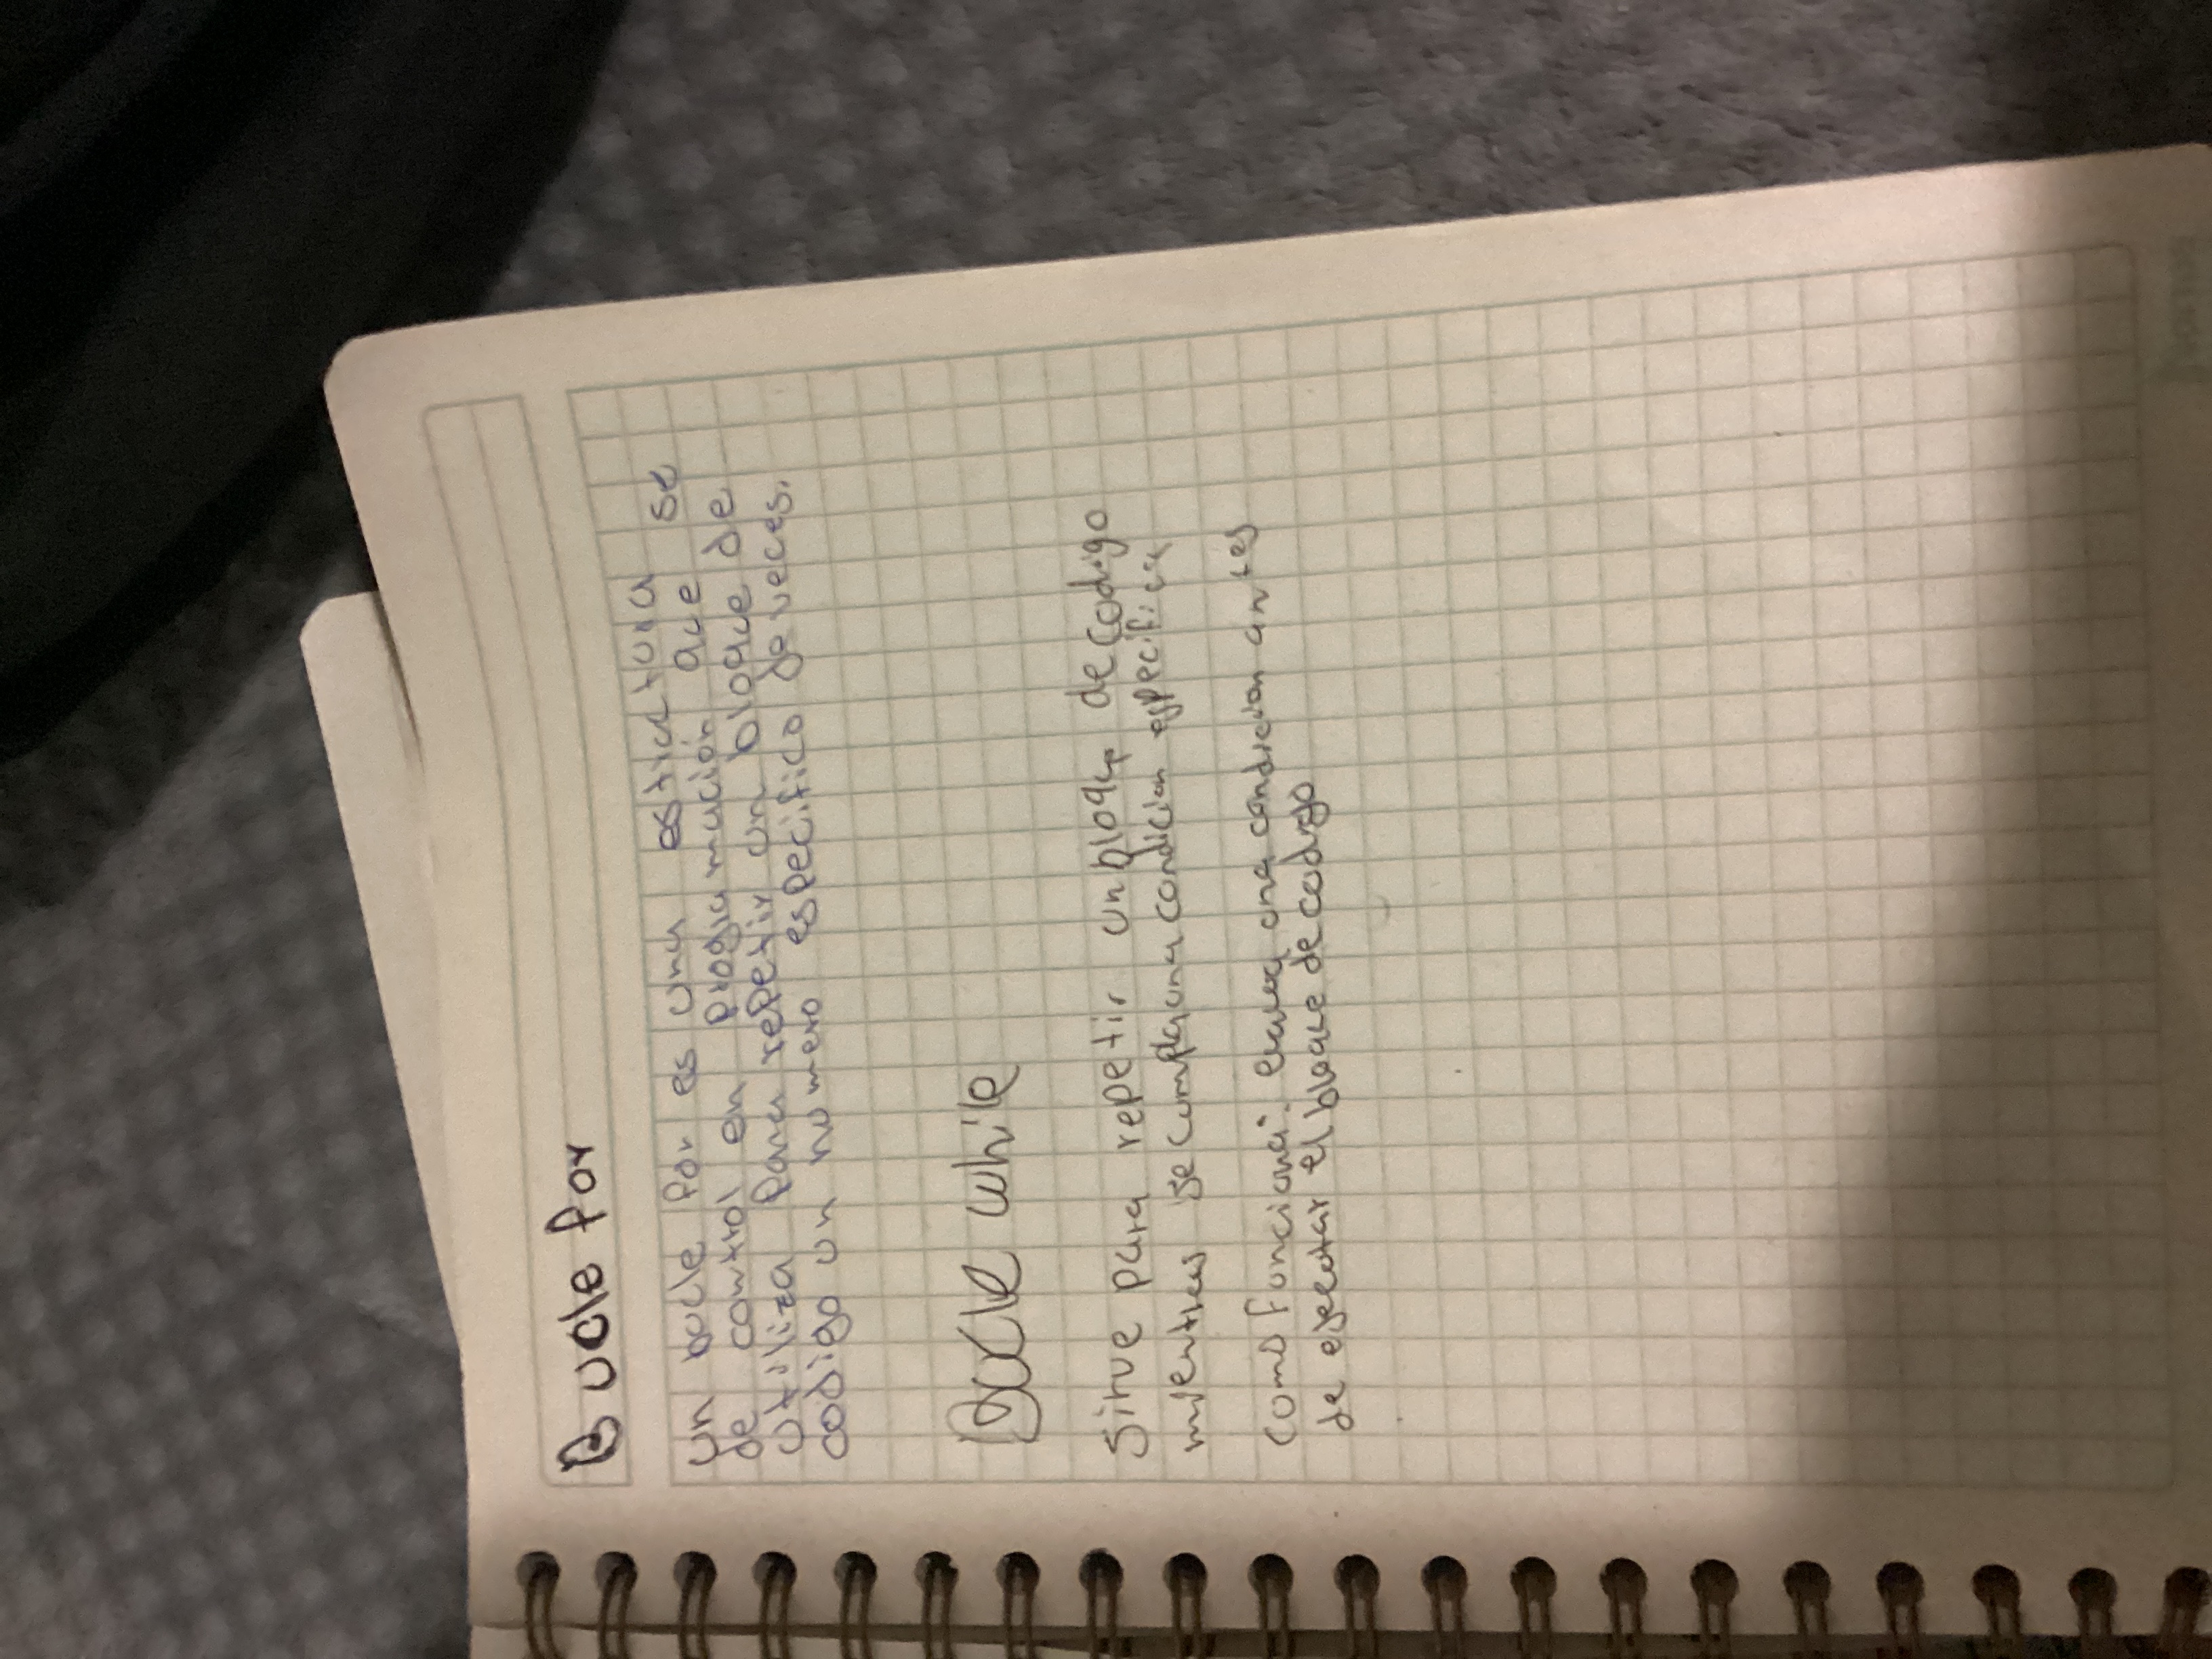 Bucle For
un bucle For es una estructura
de control en programación que se
utiliza para repetir un bloque de
codigo un numero especifico de veces.
Bucle while
Sirve para repetir un bloque de codigo
mientras se cumpla una condicion especifica
como funciona: evalua una condicion antes
de ejecutar el bloque de codigo